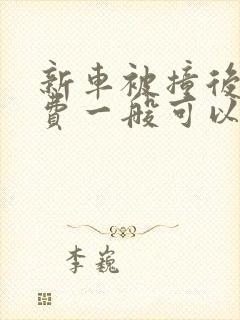 新車被撞後
費一般可以
李巍